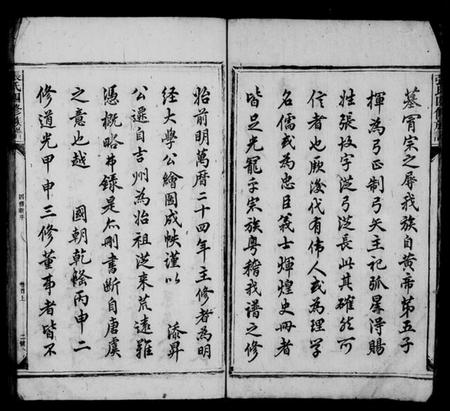 墓冐宗之辱我族自黄帝第五子
揮為弓正制弓矢主祀弧星得賜
姓張故字從弓從長此其確然可
信者也厥後代有偉人或為理學
名儒或為忠臣義士輝煌史冊者
皆足光寵子宗族粤稽我譜之修
始前明萬曆二十四年主修者為明
經大學公繪圖成帙謹以 添昇
公遷自吉州為始祖從來荒遠難
憑概略弗錄是亦刪書斷自唐虞
之意也越 國朝乾隆丙申二
修道光甲申三修董事者皆不
張氏四修族譜
四修敘序
卷首上